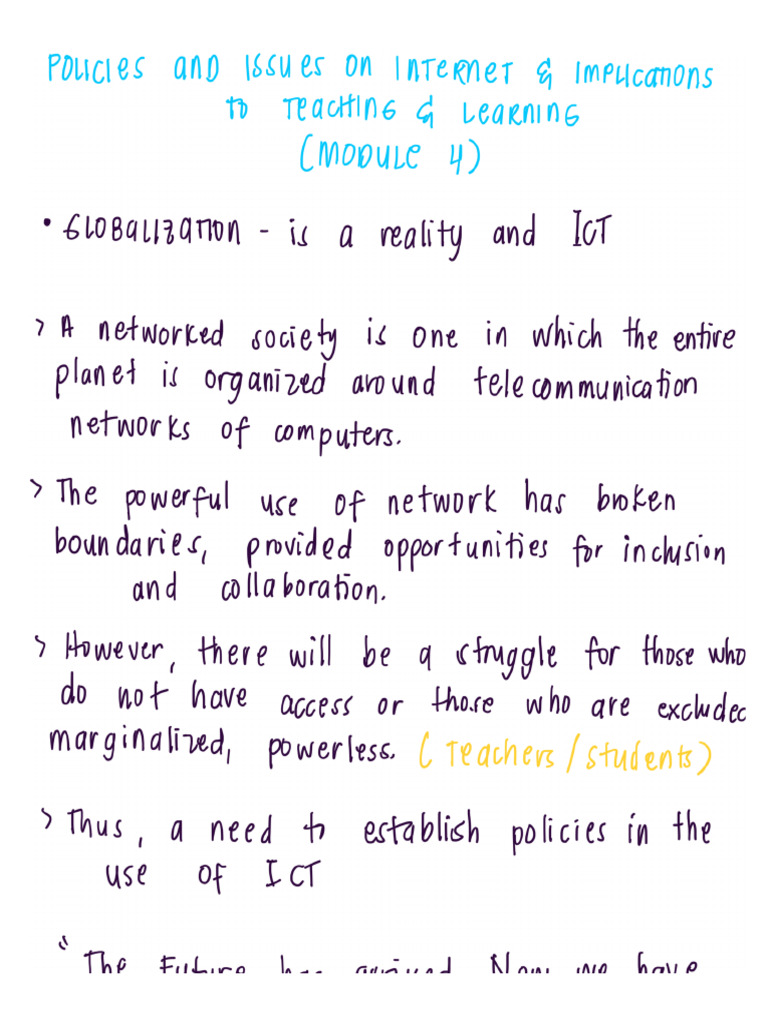 POLICIES AND ISSUES ON INTERNET & IMPLICATIONS
TO TEACHING & LEARNING
(MODULE 4)
• GLOBALIZATION - is a reality and ICT
> A networked society is one in which the entire
planet is organized around telecommunication
networks of computers.
> The powerful use of network has broken
boundaries, provided opportunities for inclusion
and collaboration.
> However, there will be a struggle for those who
do not have access or those who are excluded
marginalized, powerless. (Teachers/students)
> Thus, a need to establish policies in the
use of ICT
"The Future has arrived. Now we have